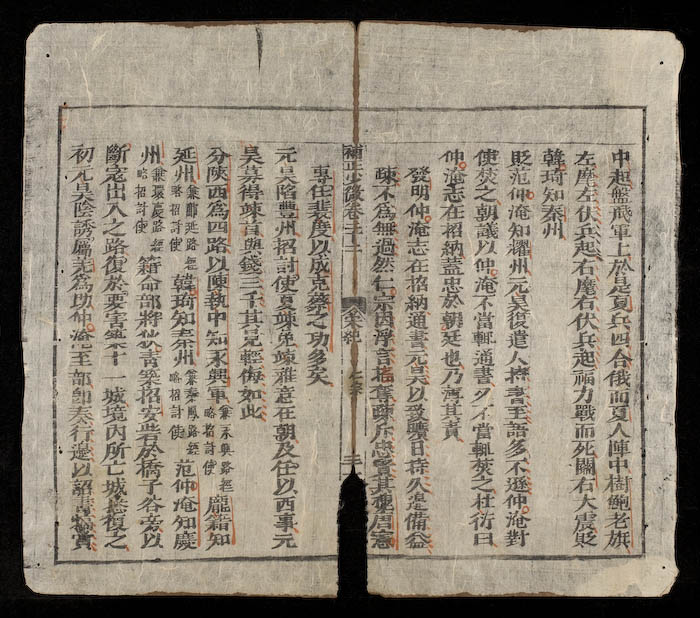 中起盤飛軍上於是夏兵四合俄而夏人陣中樹鮑老旗
左麾左伏兵起右麾右伏兵起福力戰而死關右大震貶
韓琦知秦州
貶范仲淹知耀州元昊復遣人書至語多不遜仲淹對
使焚之朝議以仲淹不當輒通書又不當輒焚之杜衍曰
仲淹志在招納蓋忠於朝廷也乃薄其責
發明仲淹志在招納通書元昊以致曠日持久怠備益
疎不為無過然仁宗因浮言搖奪疎斥忠賢其視周憲
補正少微卷三十二
宋紀
三
專任裴度以成克蔡之功多矣
元昊陷豐州招討使夏竦罷竦雅意在朝及任以西事元
昊募得竦首與錢三千其見輕侮如此
分陝西為四路以陳執中知永興軍兼永興路經略招討使龐籍知
延州兼鄜延路經略招討使韓琦知秦州兼秦鳳路經略招討使范仲淹知慶
州兼環慶路經略招討使籍命部將狄青築招安砦於橋子谷旁以
斷寇出入之路復於要害築十一城境内所亡城悉復之
初元昊陰誘屬羌為助仲淹至部即奏行邊以詔書犒賞